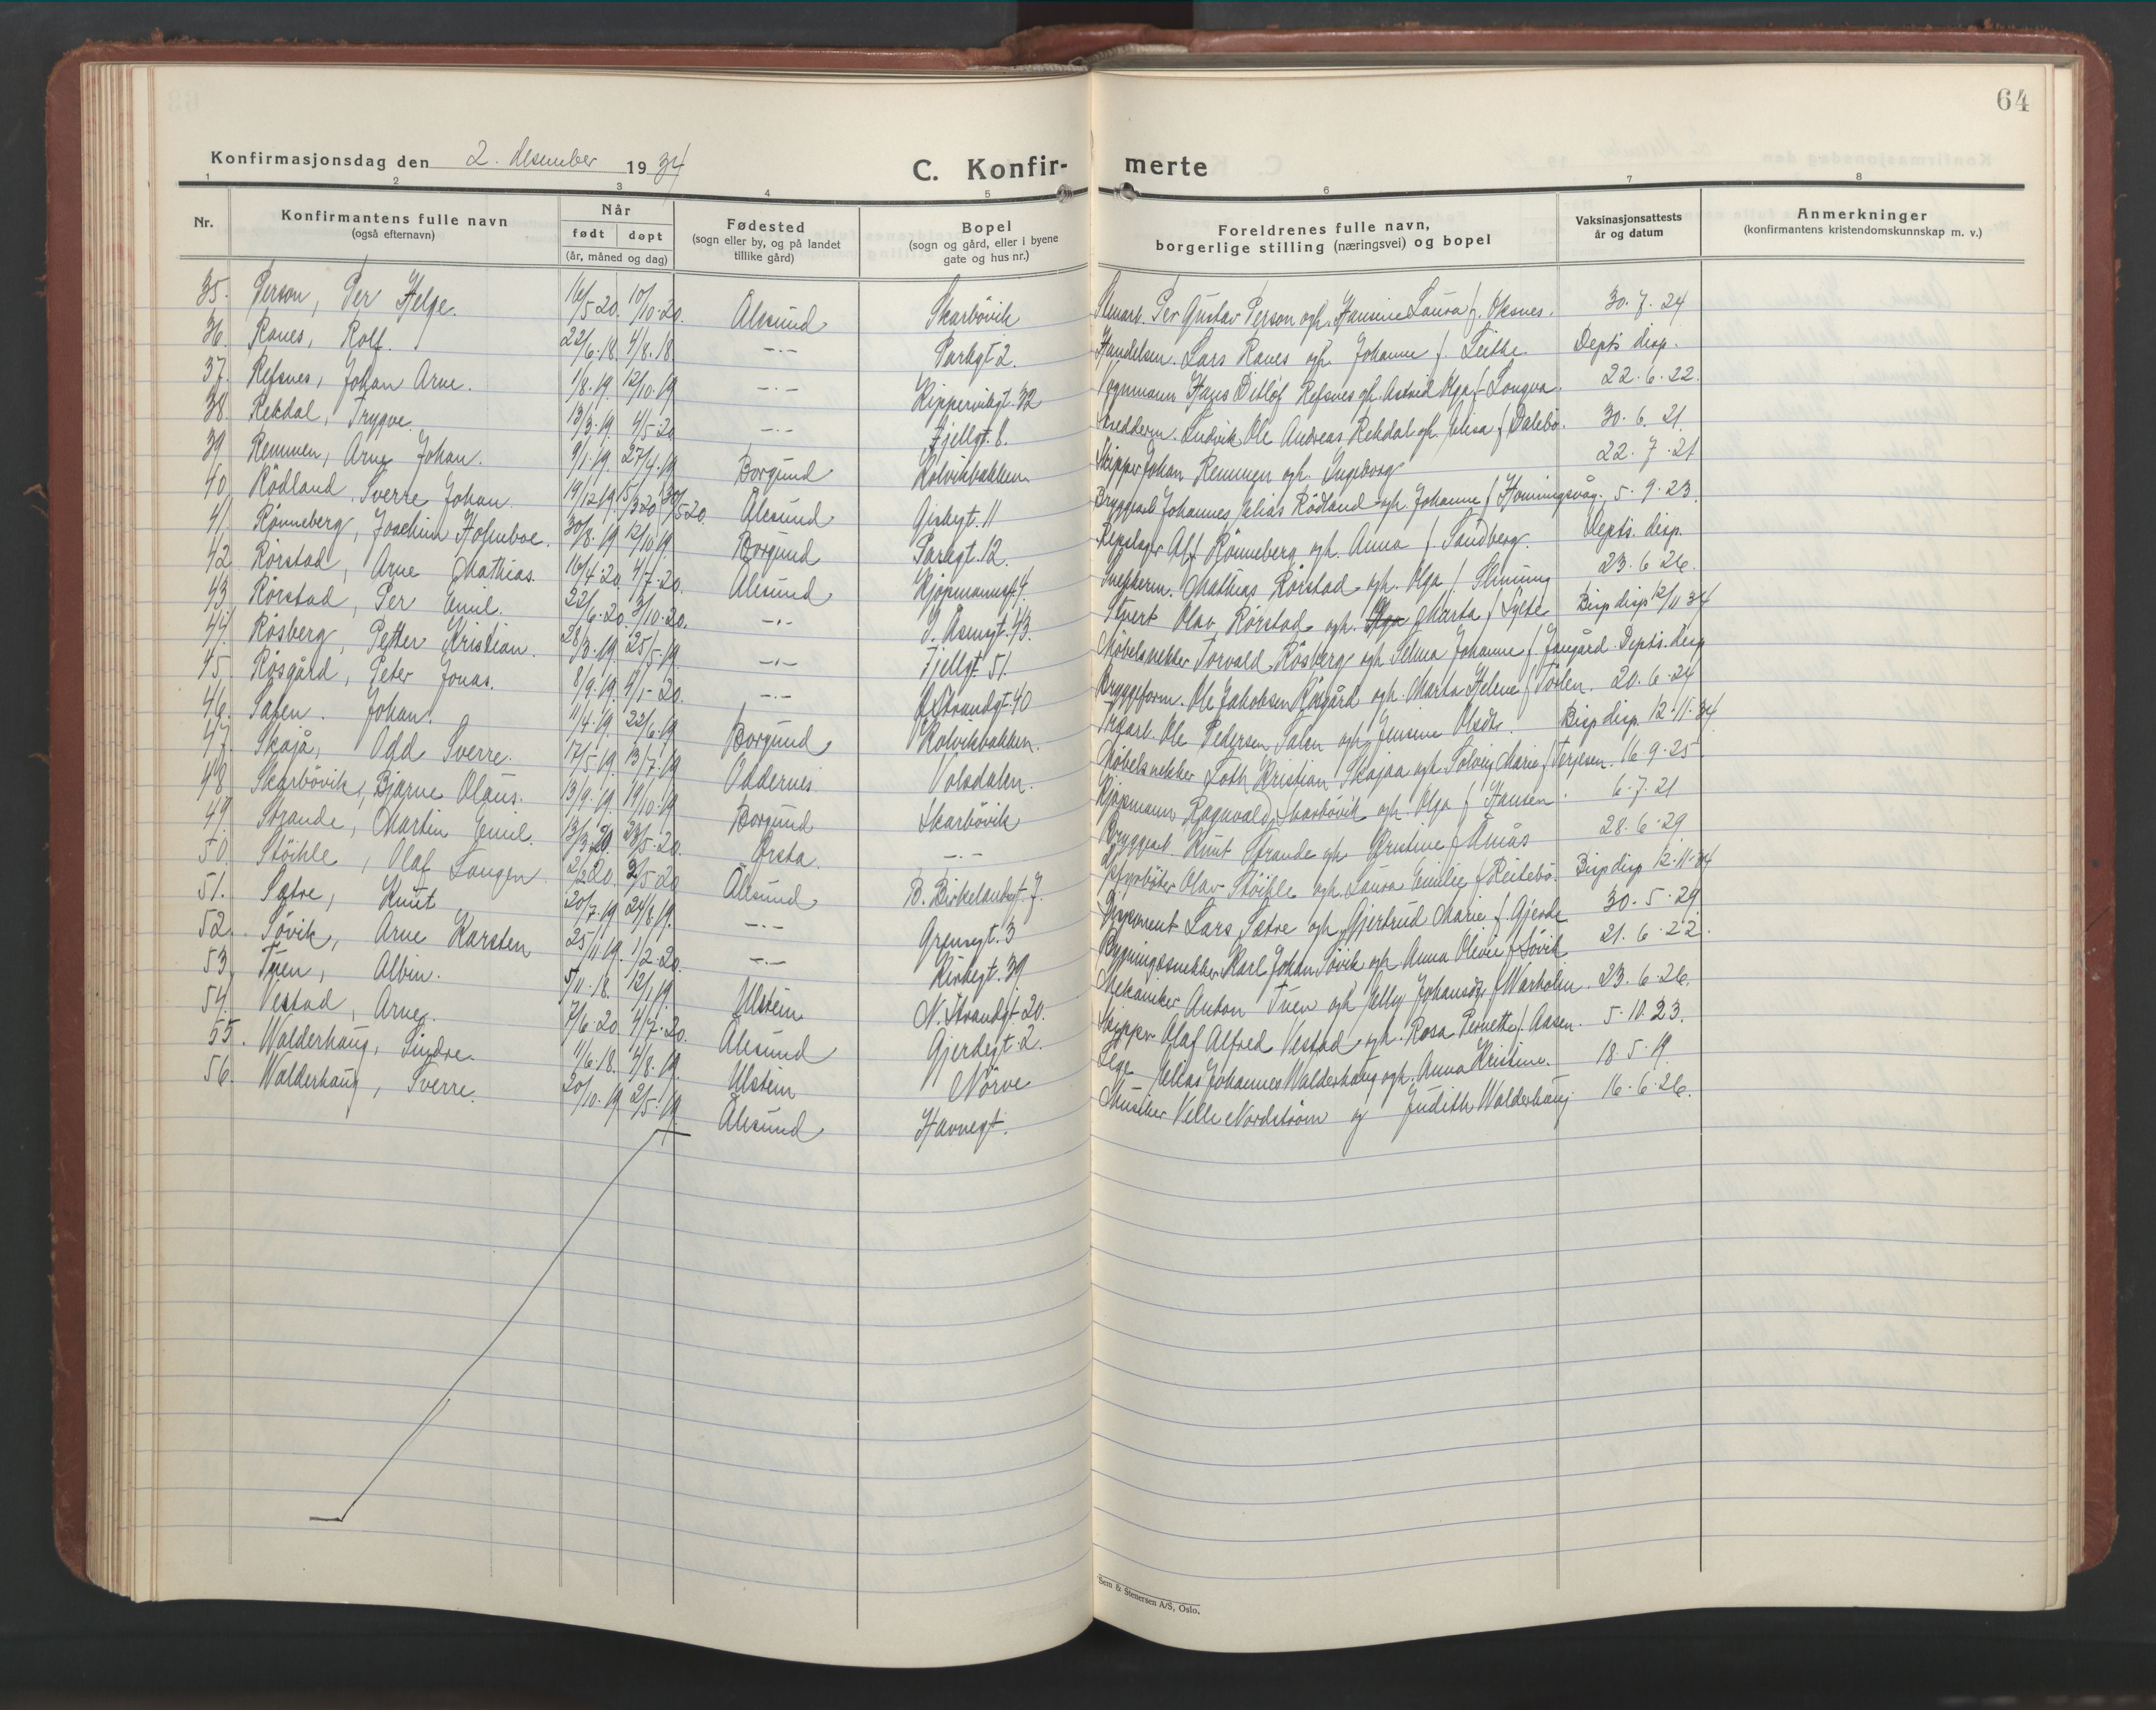 64
Konfirmasjonsdag den 2. desember 1934
C. Konfir- merte
1 2 3 4 5 6 7 8
Nr. Konfirmantens fulle navn (også efternavn) Når født døpt (år, måned og dag) Fødested (sogn eller by, og på landet tillike gård) Bopel (sogn og gård, eller i byene gate og hus nr.) Foreldrenes fulle navn, borgerlige stilling (næringsvei) og bopel Vaksinasjonsattests år og datum Anmerkninger (konfirmantens kristendomskunnskap m. v.)
35. Person, Per Helge. 16/5-20. 10/10-20. Ålesund Skarbövik Per Gustav Person og h. Hansine Laura f. Oksnes. 30.7.24
36. Ranes, Rolf. 22/6.18. 4/8.18 -.- Parkgt 2. Handelsm. Lars Ranes og h. Johanne f. Leithe. Dept's disp.
37. Refsnes, Johan Arne. 1/8.19. 12/10.19 -.- Kippervikgt. 32 Vognmann Hans Ditlof Refsnes og h. Astrid Olga f. Longva. 22.6.22.
38. Rekdal, Trygve. 13/3.19. 4/5-20 -.- Fjellgt. 8. Ludvik Ole Andreas Rekdal og h. Elisa f. Dalebö. 30.6.21.
39 Remmen, Arne Johan. 9/1.19. 27/4.19 Borgund Kolvikbakken Skipper Johan Remmen og h. Ingeborg 22.7.21
40. Rödland, Sverre Johan. 19/12.19. 15/3-20 30/5-20. Ålesund Giskegt. 11 Bryggearb. Johannes Elias Rödland og h. Johanne f. Honningsvåg. 5.9.23.
41. Rönneberg, Joachim Holmboe. 30/8.19 12/10.19. Borgund Parkgt. 12. Repslager Alf Rönneberg og h. Anna f. Sandberg. Dept's. disp.
42 Rörstad, Arne Mathias. 16/4.20 4/7-20. Ålesund Kjøpmannsgt. 4. Snekkerm. Mathias Rörstad og h. Olga f. 23.6.26.
43. Rörstad, Per Emil. 22/6.20. 3/10-20. -.- J. Åsensgt. 43. Typert Olav Rörstad og h. Olga Marta f. Sylte Bisp disp 12/11 34
44. Rösberg, Petter Kristian. 28/3.19. 25/5.19. -.- Fjellgt. 51. Möbelsnekker Torvald Rösberg og h. Selma Johanne f. Dept's. disp
45. Rösgård, Peter Jonas. 8/9.19. 4/1-20. -.- Strandgt. 40 Bryggeform. Ole Jakobsen Rösgård og h. Marta Helene f. Törlen. 20.6.24
46. Salen. Johan. 11/4.19. 22/6.19 Borgund Kolvikbakken. Ole Pedersen Salen og h. Jensine Olsdt. Bisp disp 12.11.34
47. Skajå, Odd Sverre. 17/5.19. 13/7.19 Oddernes Volsdalen. Möbelsnekker Loth Kristian Skajaa og h. Solveig Marie f. Terjesen. 16.9.25
48 Skarbövik, Bjarne Olaus. 13/9.19. 19/10.19 Borgund Skarbövik Kjøpmann Ragnvald Skarbövik og h. Olga f. Hansen. 6.7.21
49. Strande, Martin Emil. 13/3.20. 23/5-20. Ørsta. -.- Bryggearb. Knut Strande og h. Kristine f. Åmås 28.6.29.
50. Stöihle, Olaf Langen. 2/2 20. 2/5-20 Ålesund B. Birkelandsgt. 7. Fyrböter Olav Stöihle og h. Laura Emilie f. Reitebö. Bisp disp 12.11.34
51. Sætre, Knut 20/7.19 24/8.19. -.- Grensegt. 3 Lars Sætre og h. Gjertrud Marie f. Gjerde 30.5.29
52. Sövik, Arne Karsten 25/11 19. 1/2-20. -.- Kirkegt. 39. Bygningssnekker Karl Johan Sövik og h. Anna Olivie f. Sövik 21.6.22.
53. Tuen, Albin. 5/11.18. 12/1.19. Ulstein N. Strandgt. 20. Mekaniker Anton Tuen og h. Elly Johansdtr. f. Warholm. 23.6.26.
54. Vestad, Arne. 7/6.20. 4/7.20. Ålesund Gjerdegt. 2. Skipper Olaf Alfred Vestad og h. Rosa Pernette f. Aasen. 5.10.23.
55. Walderhaug, Sindre. 11/6.18. 4/8.19. Ulstein Nörve Lege Elias Johannes Walderhaug og h. Anna Kristine. 18.5.19.
56. Walderhaug, Sverre. 20/10.19. 2/5.19. Ålesund Havnegt. Musiker Velle Nordström og Judith Walderhaug. 16.6.26.
Sem & Stenersen A/S, Oslo.